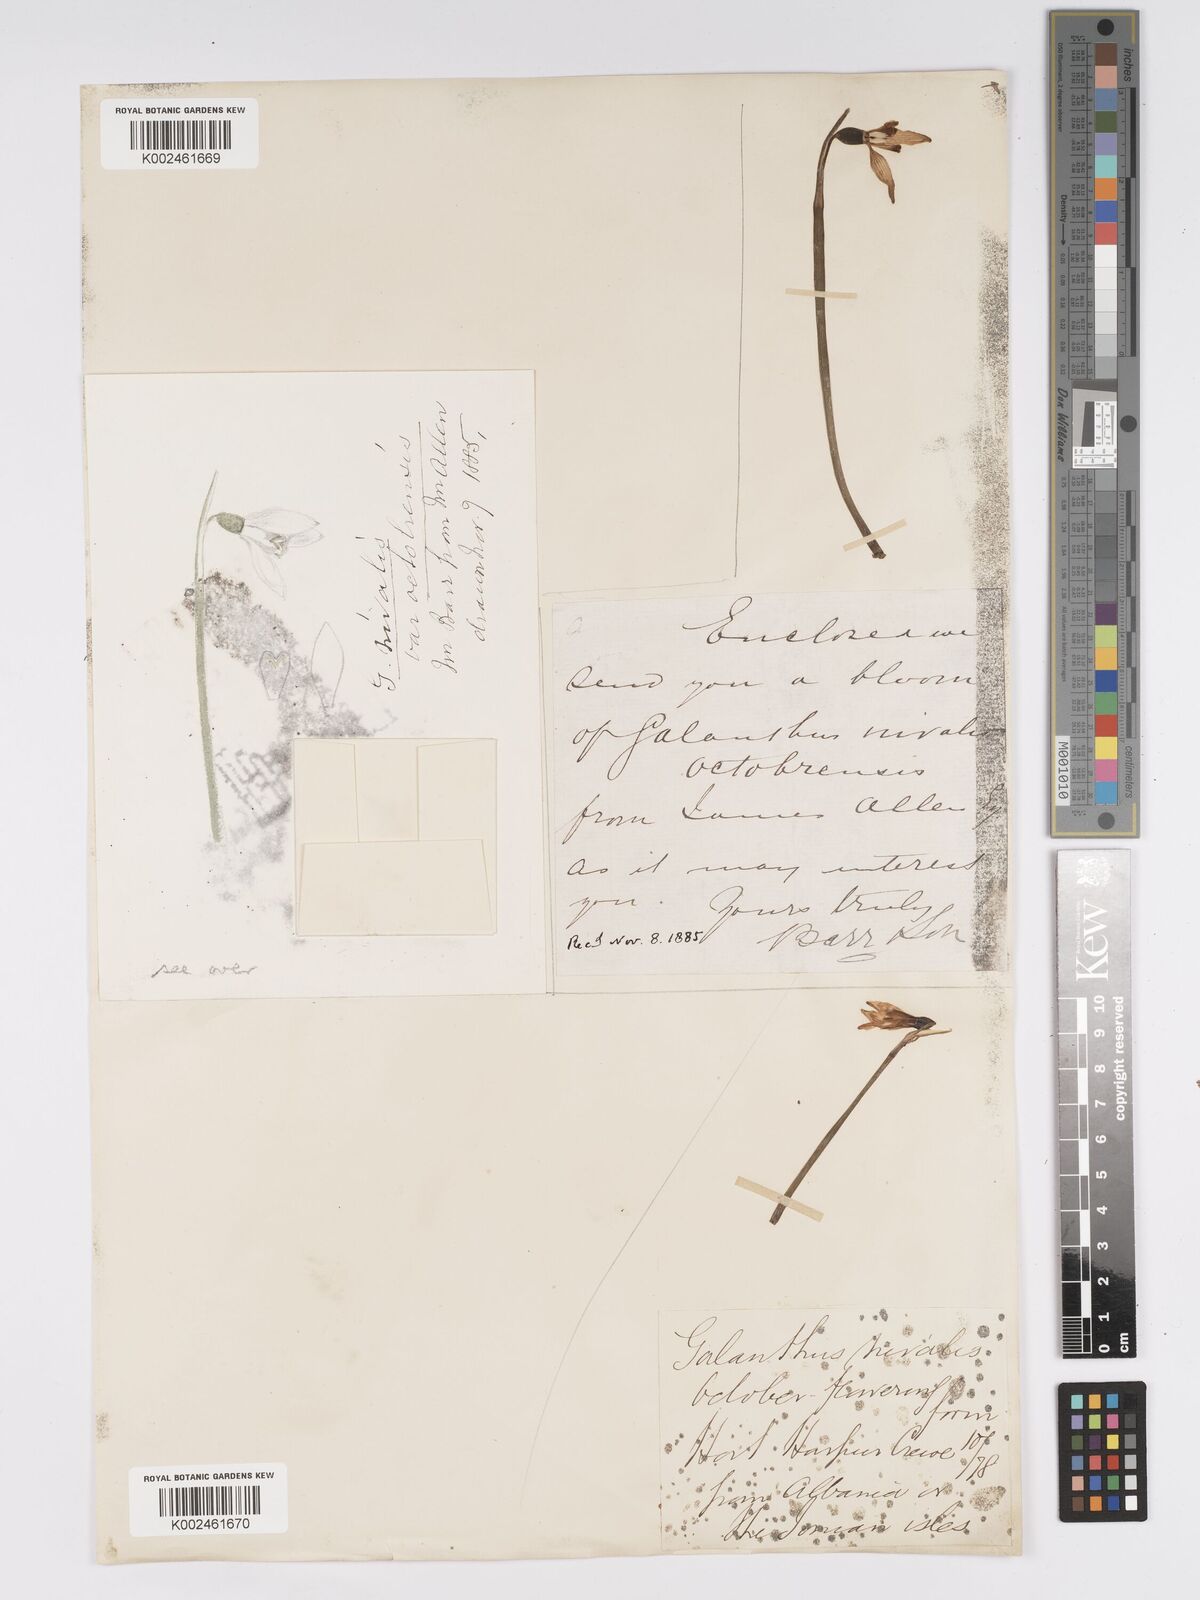 ROYAL BOTANIC GARDENS KEW
K002461669
G. nivalis
var octobrensis
Mr Barr from Mr Allen
drawn Nov. 9 1885,
see over
Enclosed we
send you a bloom
of Galanthus nivalis
octobrensis
from James Allen Esq
as it may interest
you. Yours truly
Barr & Son
Recd Nov. 8. 1885
Galanthus nivalis
October-flowering
form
Hort Harpur Crewe 10/78
from Albania or
the Ionian isles
ROYAL BOTANIC GARDENS KEW
K002461670
inches
Density
Don Williams
M001010
centimeters
Kew
copyright reserved
0 1 2 3 4 5 6 7 8 9 10
cm